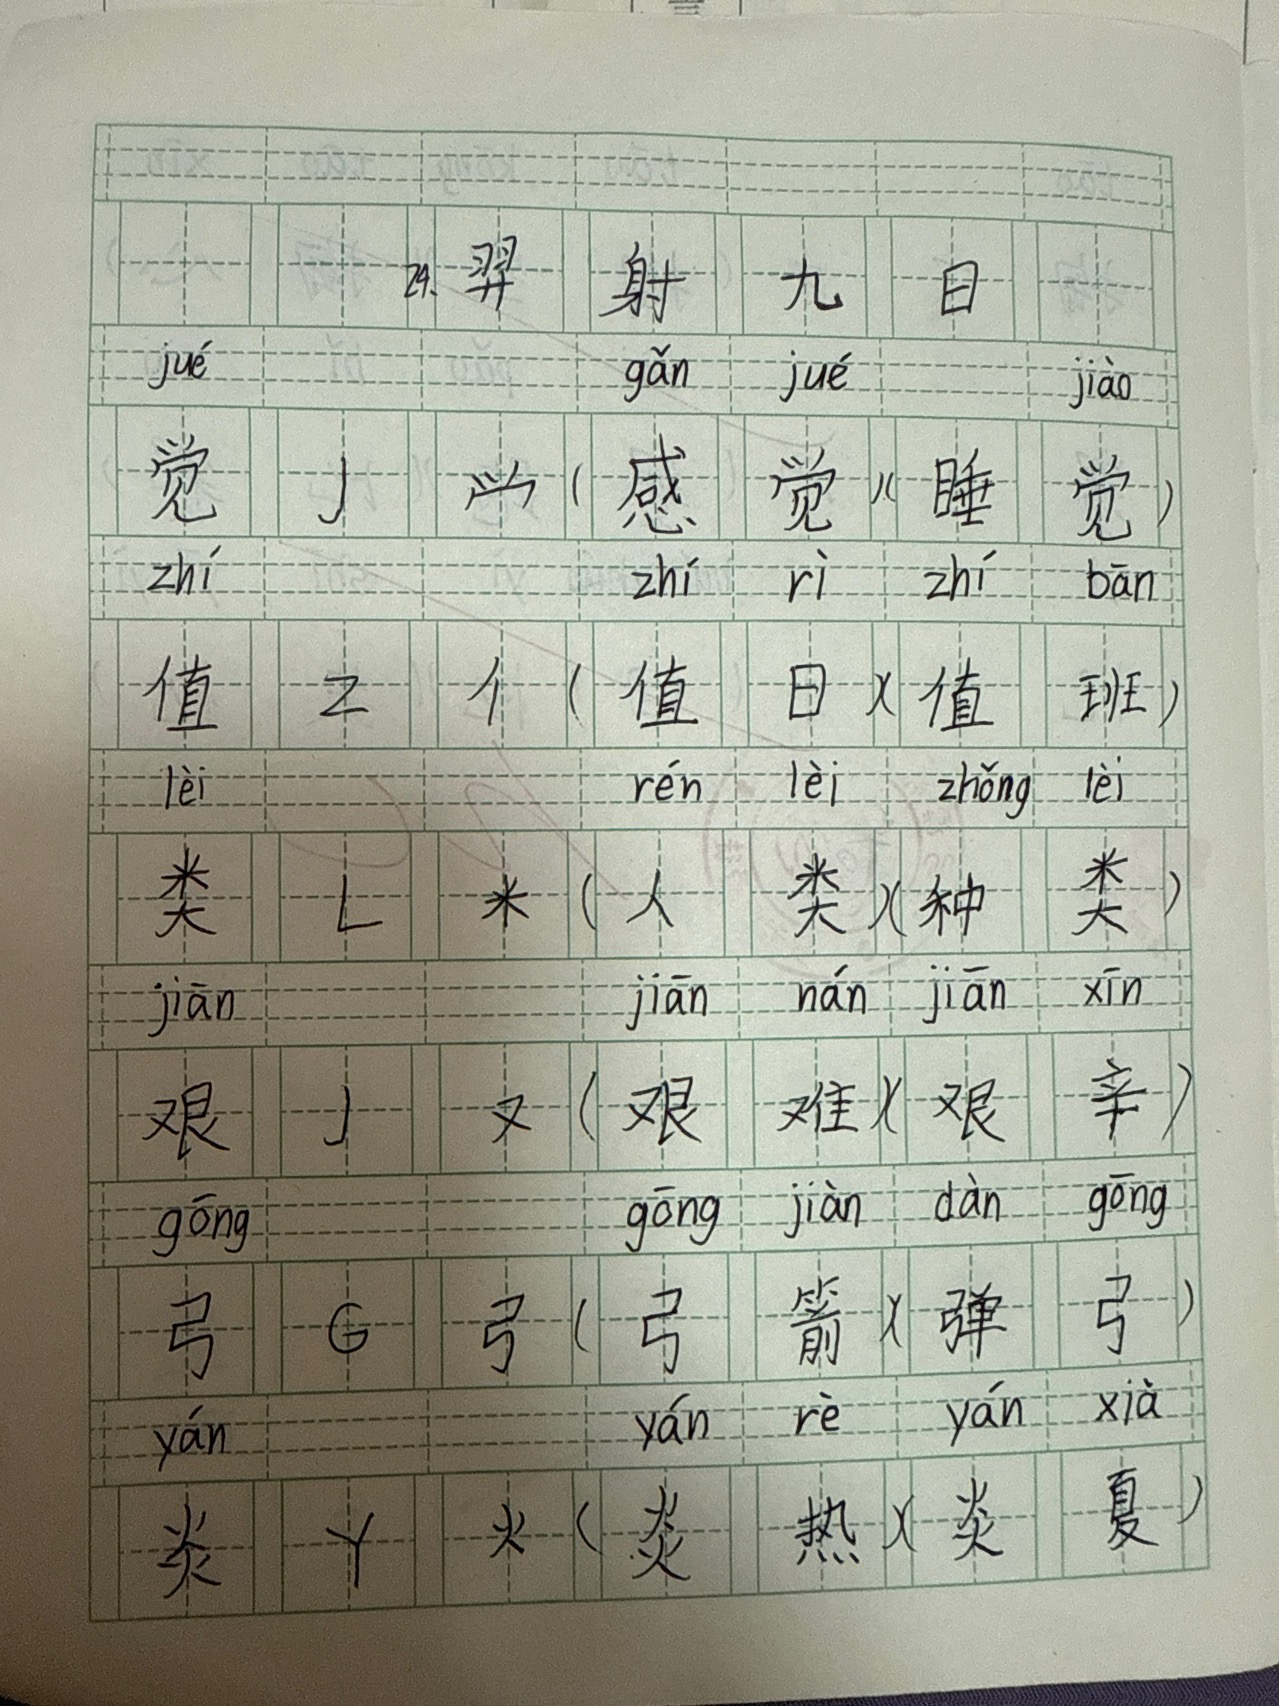 24、羿射九日
jué gǎn jué jiào
觉 J 𰃮 (感觉)(睡觉)
zhí zhí rì zhí bān
值 Z 亻 (值日)(值班)
lèi rén lèi zhǒng lèi
类 L 米 (人类)(种类)
jiān jiān nán jiān xīn
艰 J 又 (艰难)(艰辛)
gōng gōng jiàn dàn gōng
弓 G 弓 (弓箭)(弹弓)
yán yán rè yán xià
炎 Y 火 (炎热)(炎夏)